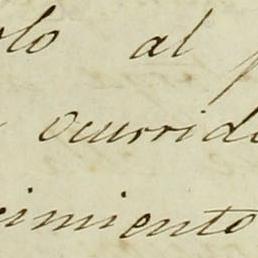 olo al p
ocurrido
cimiento